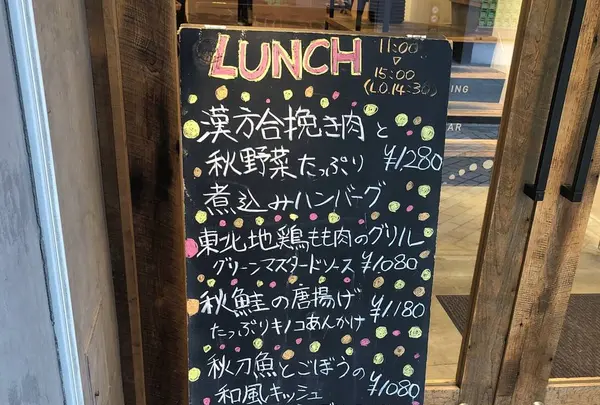 LUNCH
11:00
▽
15:00
(L.O.14:30)
漢方合挽き肉と
秋野菜たっぷり ¥1,280
煮込みハンバーグ
東北地鶏もも肉のグリル
グリーンマスタードソース ¥1080
秋鮭の唐揚げ ¥1,180
たっぷりキノコあんかけ
秋刀魚とごぼうの
和風キッシュ ¥1080
ING
AR